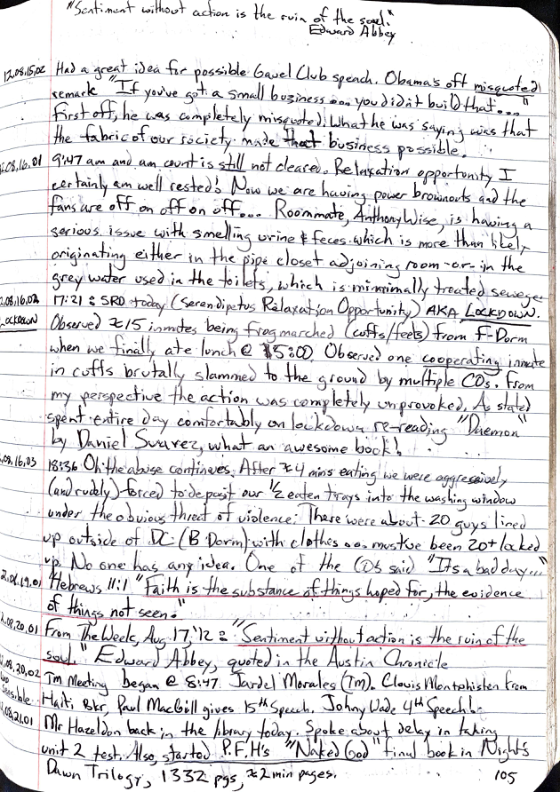 "Sentiment without action is the ruin of the soul."
Edward Abbey
12.08.15.02 Had a great idea for possible Gavel Club speach. Obama's oft misquoted
remark "If you've got a small business ... you didn't build that..."
First off, he was completely misquoted. What he was saying was that
the fabric of our society made that business possible.
.08.16.01 9:47 am and am count is still not cleared. Relaxation opportunity I
certainly am well rested! Now we are having power brownouts and the
fans are off on off on off... Roommate, Anthony Wise, is having a
serious issue with smelling urine & feces which is more than likely
originating either in the pipe closet adjoining room -or- in the
grey water used in the toilets, which is minimally treated sewage
.08.16.02 17:21 : SRO today (Serendipitus Relaxation Opportunity) AKA LOCKDOWN.
LOCKDOWN Observed ≈15 inmates being frogmarched (cuffs/feets) from F-Dorm
when we finally ate lunch @ 15:00. Observed one cooperating inmate
in cuffs brutally slammed to the ground by multiple COs. From
my perspective the action was completely unprovoked. As stated
spent entire day comfortably on lockdown re-reading "Daemon"
by Daniel Suarez, what an awesome book!
.08.16.03 18:36 Oh the abuse continues. After ≈4 mins eating we were aggressively
(and rudely) forced to deposit our 1/2 eaten trays into the washing window
under the obvious threat of violence. There were about 20 guys lined
up outside of DC (B Dorm) with clothes ... must've been 20+ locked
up. No one has any idea. One of the COs said "Its a bad day..."
2.08.19.01 Hebrews 11:1 "Faith is the substance of things hoped for, the evidence
of things not seen."
2.08.20.01 From The Week, Aug 17, '12 : "Sentiment without action is the ruin of the
soul." Edward Abbey, quoted in the Austin Chronicle
.08.20.02 Tm Meeting began @ 8:47 Jardel Morales (Tm). Clovis from
Haiti 8kr. Paul MacGill gives 15th Speech. Johny 4th Speech.
.08.21.01 Mr Hazeldon back in the library today. Spoke about delay in taking
unit 2 test. Also, started P.F.H's "Naked God" final book in Night's
Dawn Trilogy, 1332 pgs, ≈2 min pages.
105